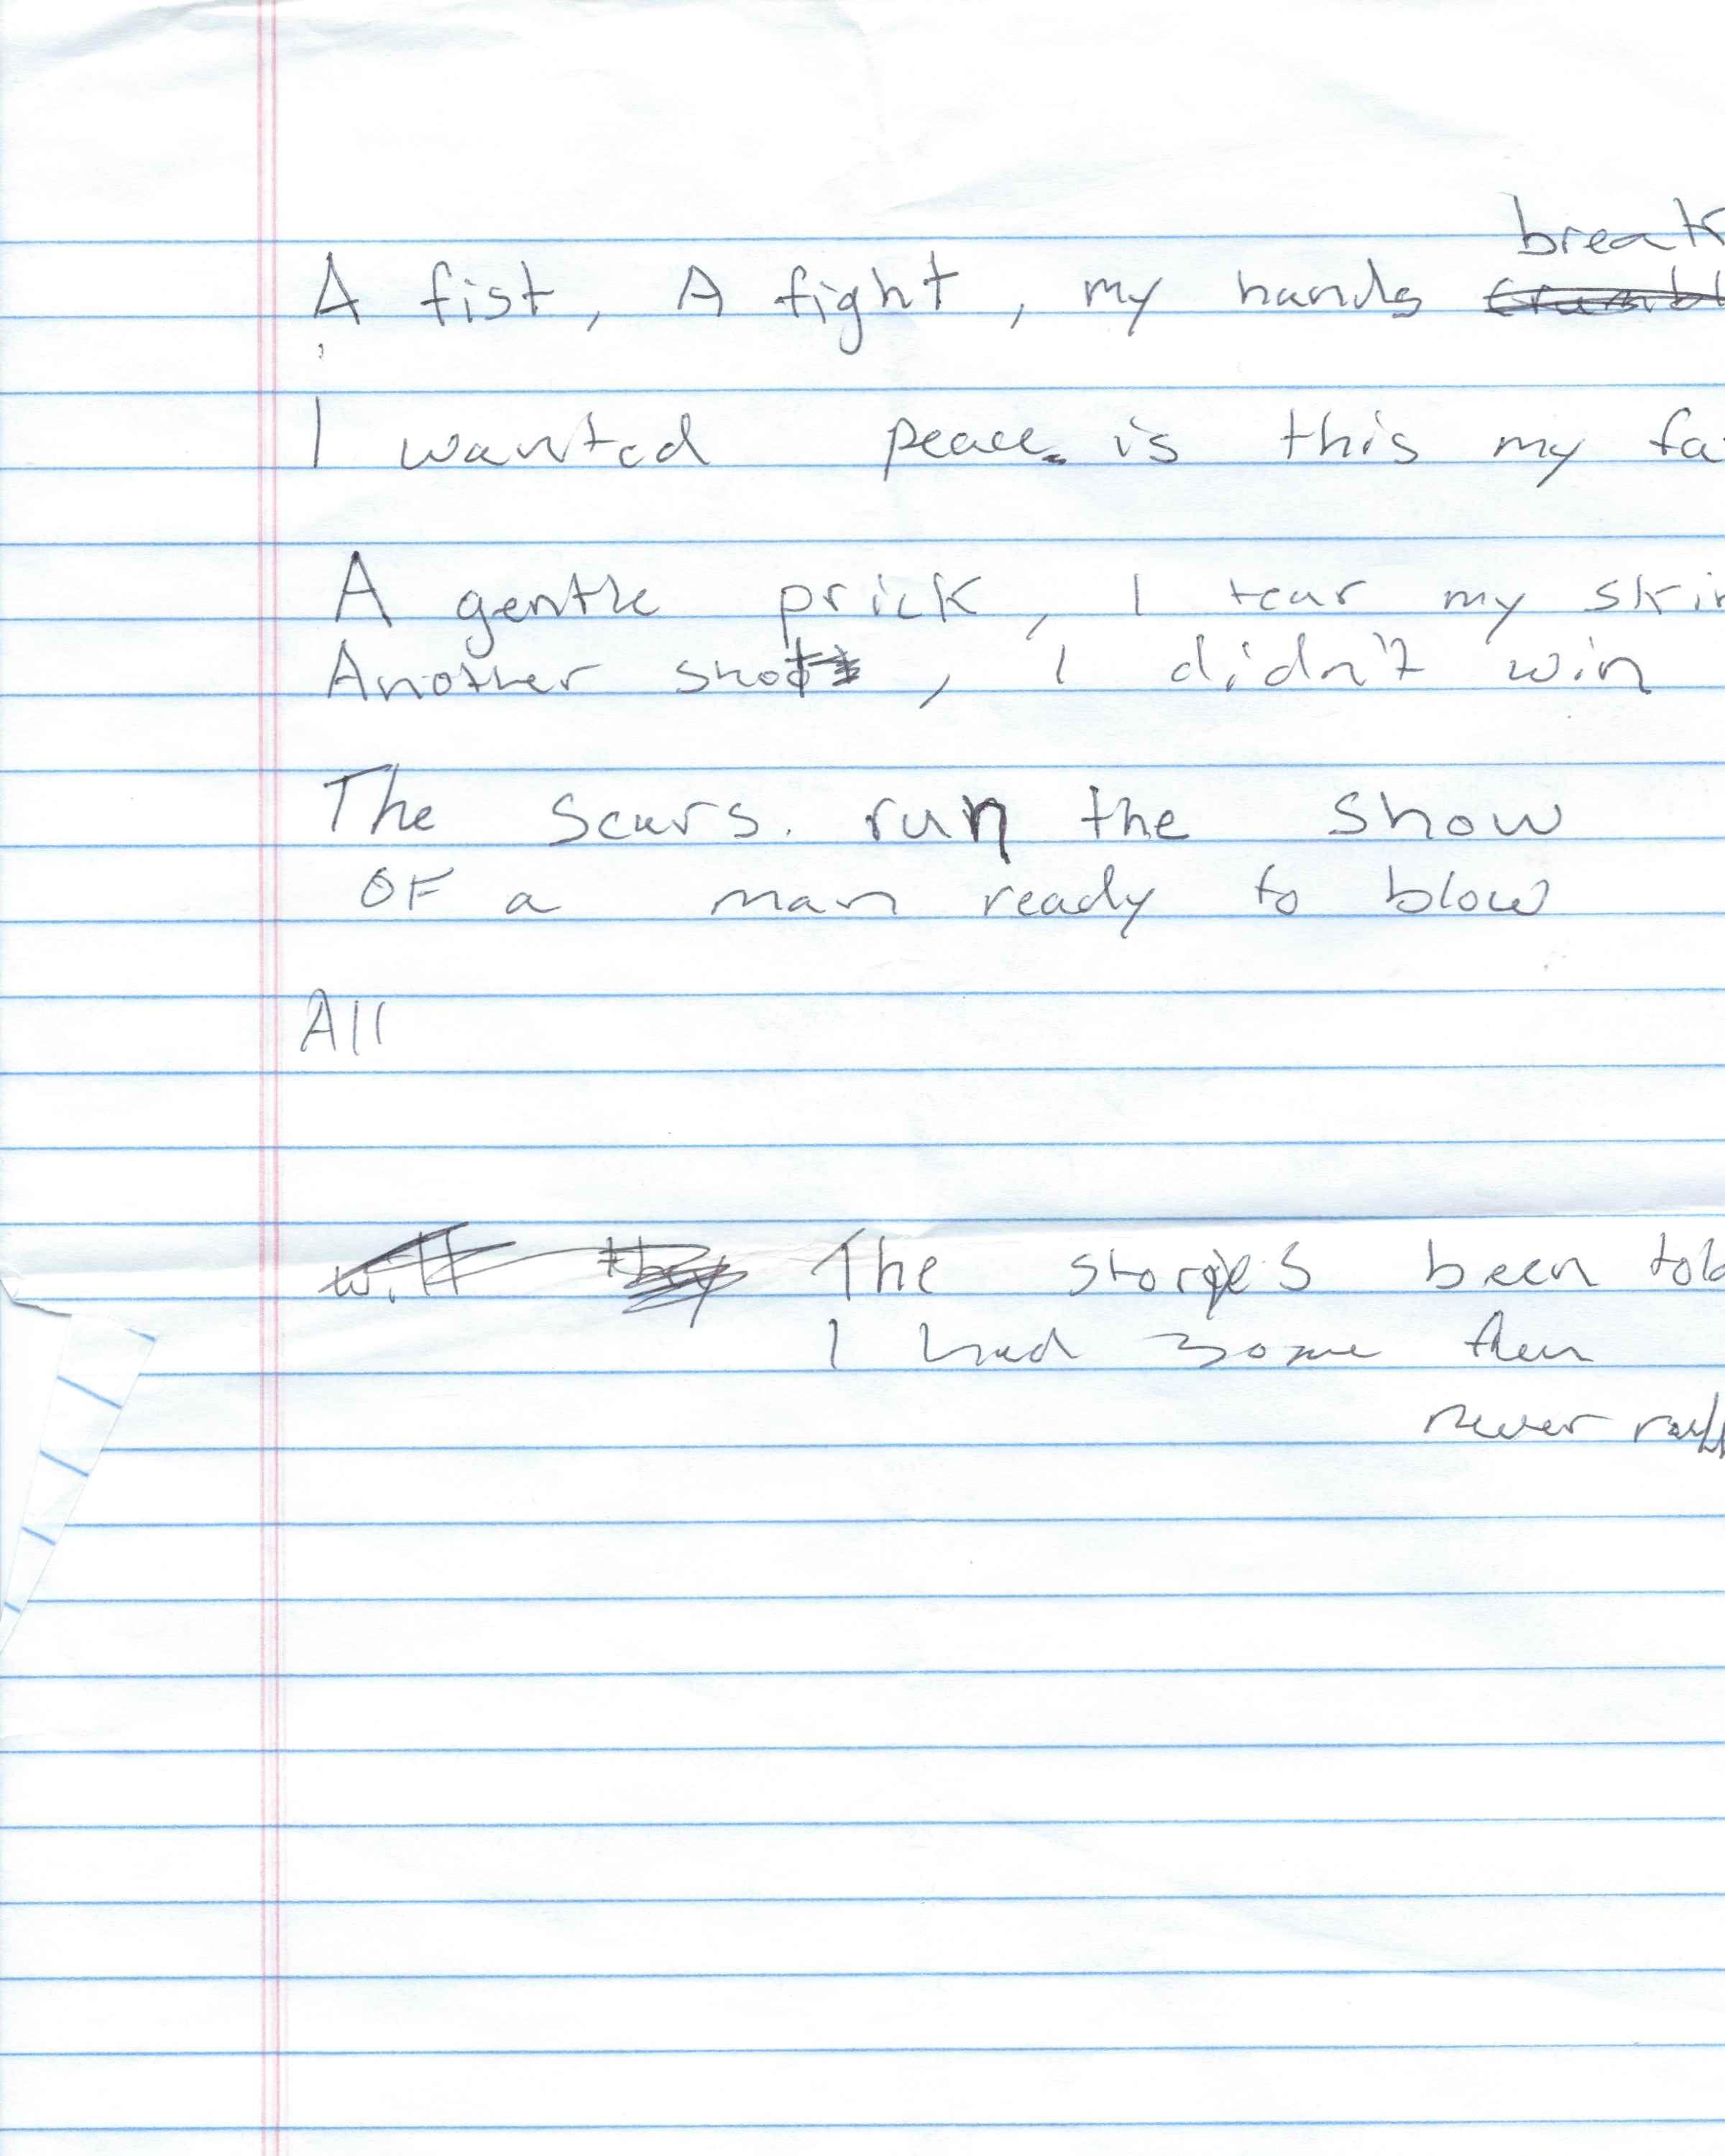 break
A fist, A fight, my hands
I wanted peace. is this my fa
A gentle prick, I tear my skin
Another shot, I didn't win
The scars. run the show
OF a man ready to blow
All
will they The stores been told
I had some then
never